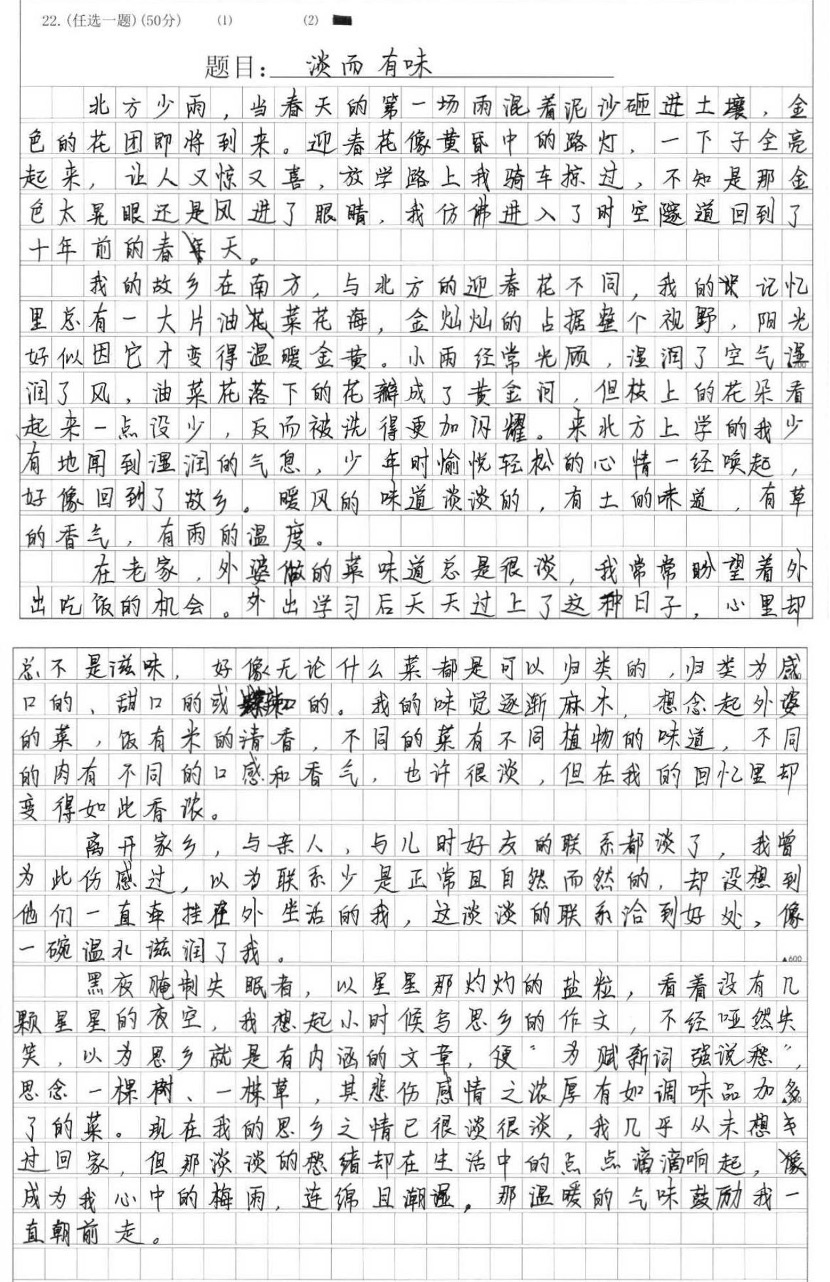 22.(任选一题)(50分) (1) (2)
题目: 淡而有味
北方少雨,当春天的第一场雨混着泥沙砸进土壤,金
色的花团即将到来。迎春花像黄昏中的路灯,一下子全亮
起来,让人又惊又喜,放学路上我骑车掠过,不知是那金
色太晃眼还是风进了眼睛,我仿佛进入了时空隧道回到了
十年前的春天。
我的故乡在南方,与北方的迎春花不同,我的记忆
里总有一大片油菜花海,金灿灿的占据整个视野,阳光
好似因它才变得温暖金黄。小雨经常光顾,湿润了空气湿
润了风,油菜花落下的花瓣成了黄金河,但枝上的花朵看
起来一点没少,反而被洗得更加闪耀。来北方上学的我少
有地闻到湿润的气息,少年时愉悦轻松的心情一经唤起,
好像回到了故乡。暖风的味道淡淡的,有土的味道,有草
的香气,有雨的温度。
在老家,外婆做的菜味道总是很淡,我常常盼望着外
出吃饭的机会。外出学习后天天过上了这种日子,心里却
总不是滋味,好像无论什么菜都是可以归类的,归类为咸
口的、甜口的或辣口的。我的味觉逐渐麻木,想念起外婆
的菜,饭有米的清香,不同的菜有不同植物的味道,不同
的肉有不同的口感和香气,也许很淡,但在我的回忆里却
变得如此香浓。
离开家乡,与亲人,与儿时好友的联系都淡了,我曾
为此伤感过,以为联系少是正常且自然而然的,却没想到
他们一直牵挂在外生活的我,这淡淡的联系洽到好处,像
一碗温水滋润了我。
▲600
黑夜腌制失眠者,以星星那灼灼的盐粒,看着没有几
颗星星的夜空,我想起小时候写思乡的作文,不经哑然失
笑,以为思乡就是有内涵的文章,便“为赋新词强说愁”,
思念一棵树、一株草,其悲伤感情之浓厚有如调味品加多
了的菜。现在我的思乡之情已很淡很淡,我几乎从未想
过回家,但那淡淡的愁绪却在生活中的点点滴滴响起,
成为我心中的梅雨,连绵且潮湿,那温暖的气味鼓励我一
直朝前走。